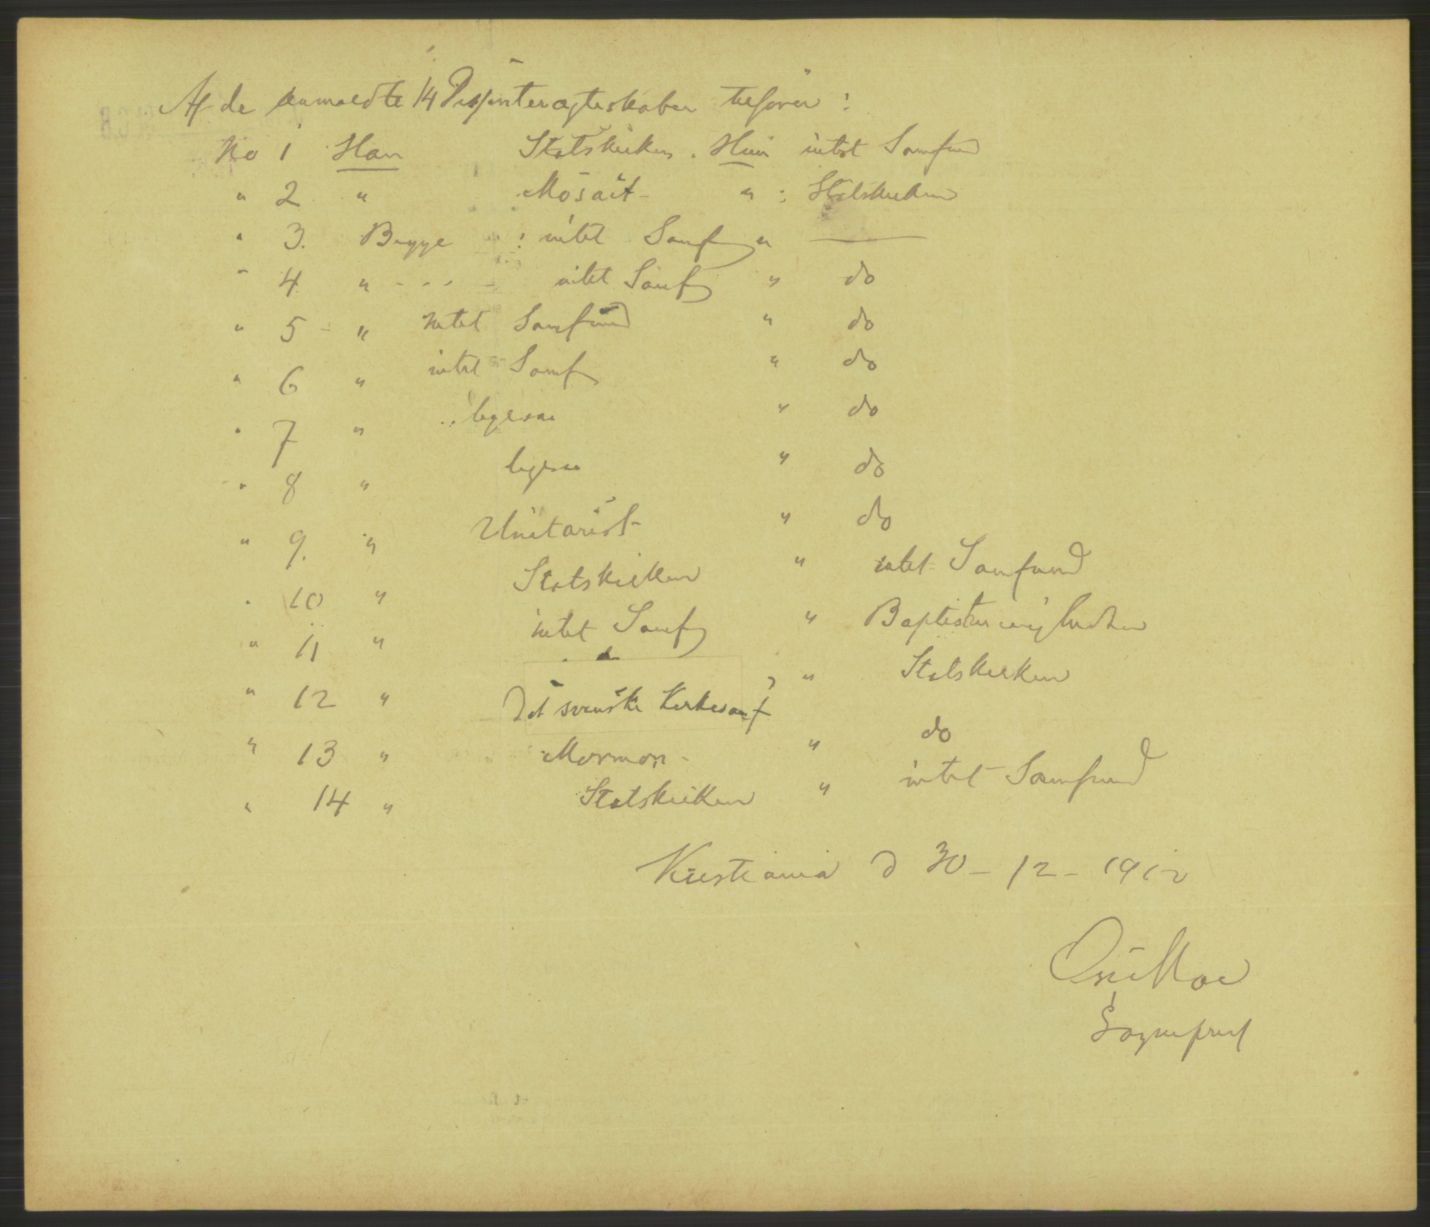 Af de anmeldte 14 Dissenterægteskaber tilhører :
No 1 Han Statskirken . Hun intet Samfund
" 2 " Mosait - " : Statskirken
" 3. Begge : intet Samf " —
" 4 " - - - - intet Samf " do
" 5 - " intet Samfund " do
" 6 " intet Samf " do
" 7 " ligesaa " do
" 8 " ligesaa " do
" 9. " Unitarist - " do
" 10 " Statskirken " intet Samfund
" 11 " intet Samf " Baptistmenigheden
" 12 " Det svenske Kirkesamf " Statskirken
" 13 " Mormon - " do
" 14 " Statskirken " intet Samfund
Kristiania d 30 - 12 - 1912
Moe
Sogneprest